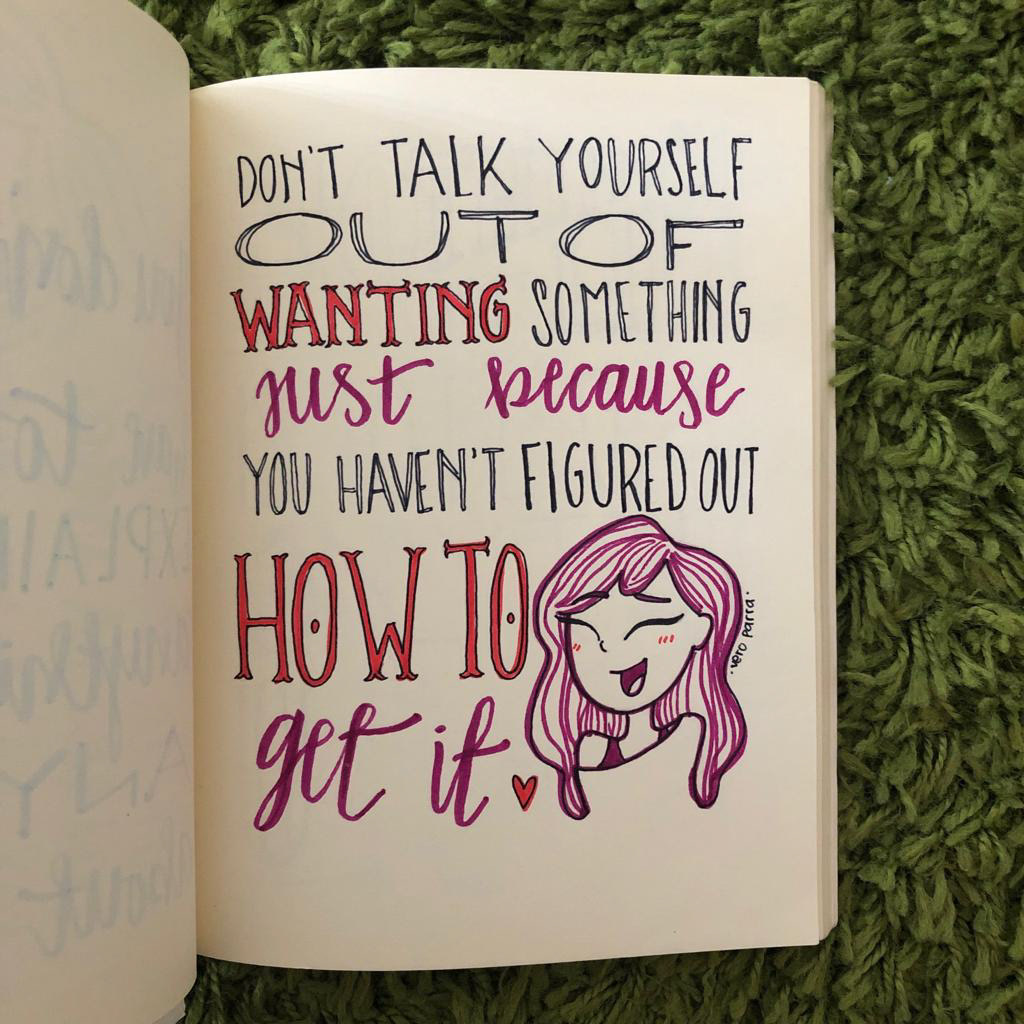 DON'T TALK YOURSELF
OUT OF
WANTING SOMETHING
just because
YOU HAVEN'T FIGURED OUT
HOW TO
get it
·vero parra·